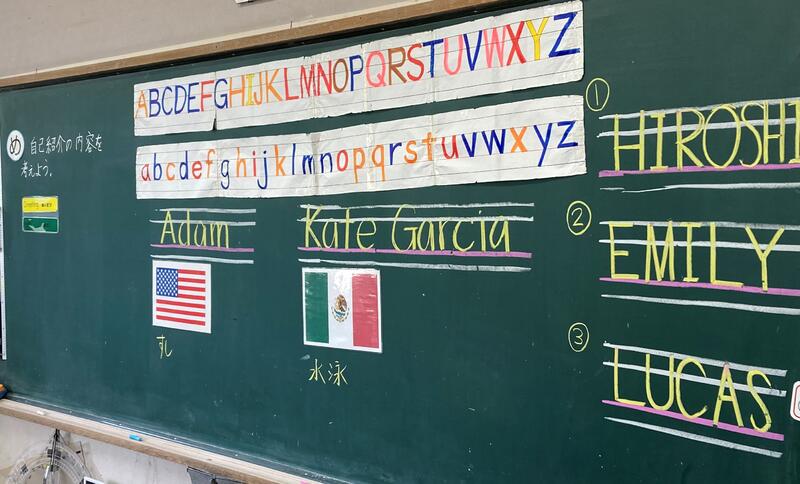 ABCDEFGHIJKLMNOPQRSTUVWXYZ
abcdefghijklmnopqrstuvwxyz
め 自己紹介の内容を
考えよう。
Adam
すし
Kate Garcia
水泳
① HIROSHI
② EMILY
③ LUCAS